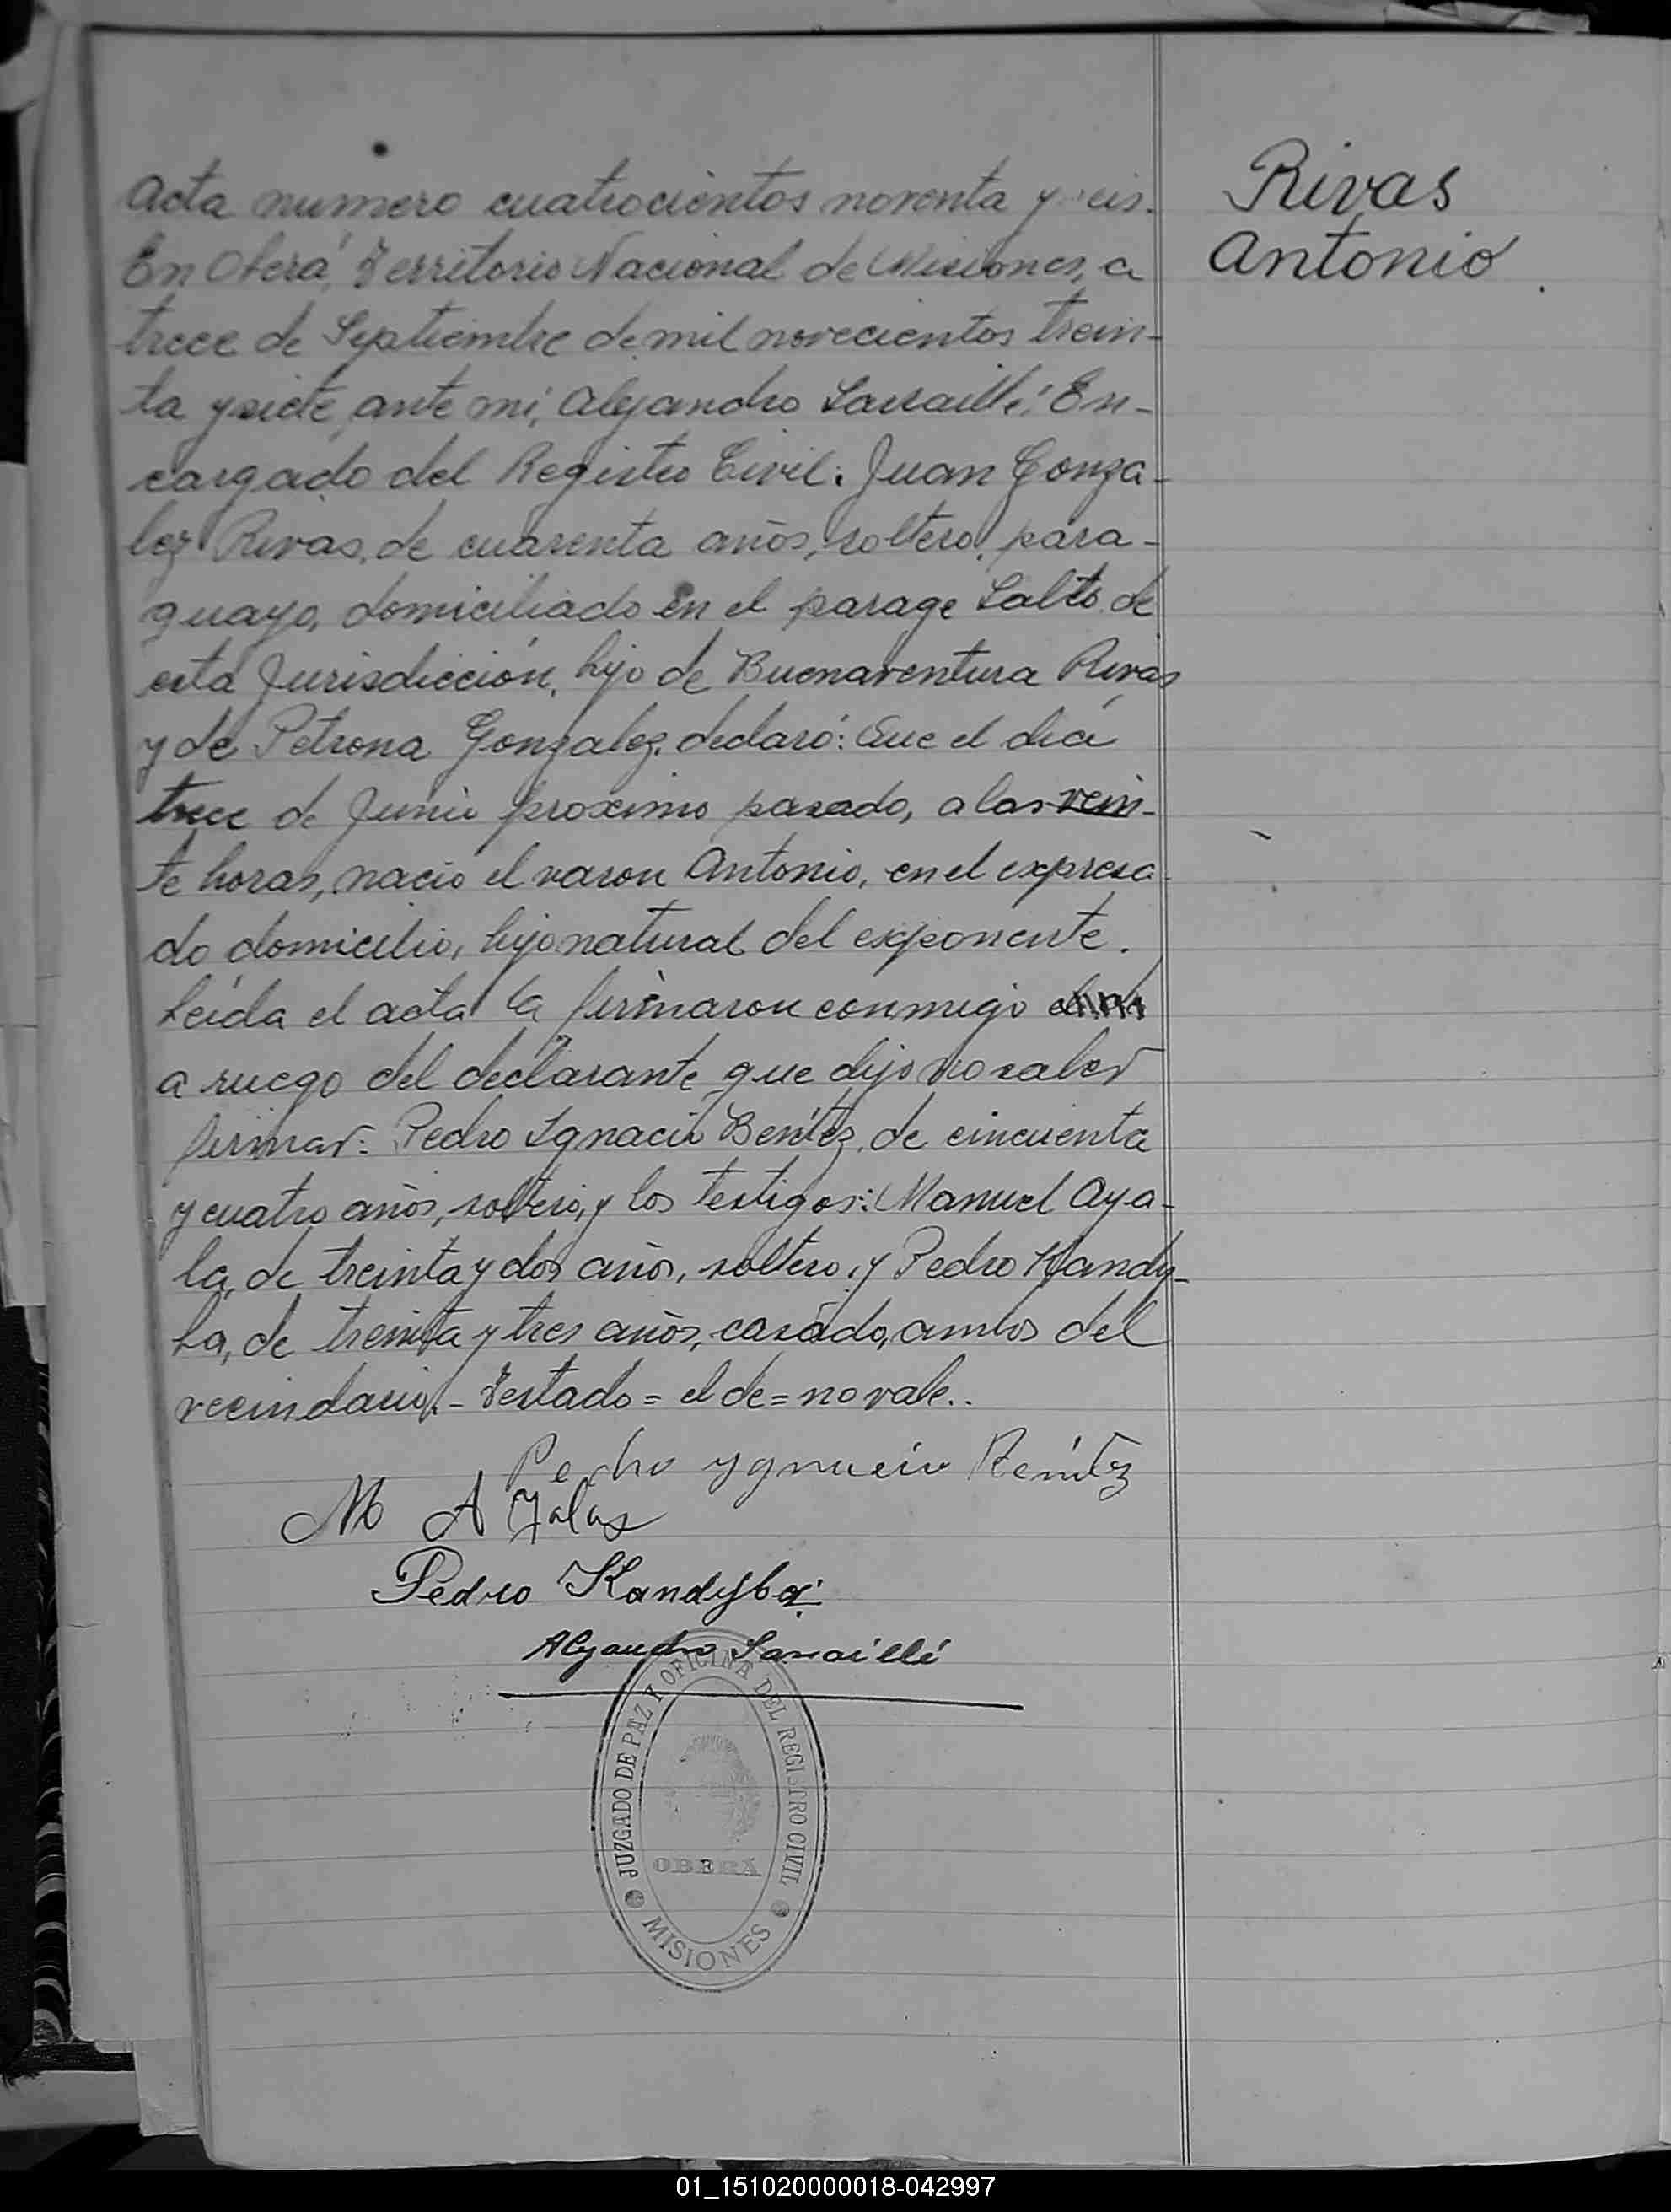 Acta numero cuatrocientos noventa y seis.
En Oberá, Territorio Nacional de Misiones, a
trece de Septiembre de mil novecientos trein-
ta y siete, ante mi, Alejandro Sarraillé, En-
cargado del Registro Civil: Juan Gonza-
lez Rivas, de cuarenta años, soltero, para-
guayo, domiciliado en el parage Salto de
esta Jurisdicción, hijo de Buenaventura Rivas
y de Petrona Gonzalez, declaró: Que el día
trece de Junio proximo pasado, a las vein-
te horas, nació el varon Antonio, en el expresa
do domicilio, hijo natural del exponente.
Leída el acta la firmaron conmigo
a ruego del declarante que dijo no saber
firmar: Pedro Ignacio Benítez, de cincuenta
y cuatro años, soltero, y los testigos: Manuel Aya-
la, de treinta y dos años, soltero, y Pedro Kandy-
ba, de treinta y tres años, casado, ambos del
vecindario.- Testado = el de = no vale..
Pedro Ygnacio Benítez
M A Yalas
Pedro Kandyba
Alejandro Sarraillé
JUZGADO DE PAZ Y OFICINA DEL REGISTRO CIVIL
OBERÁ
MISIONES
Rivas
Antonio
01_151020000018-042997